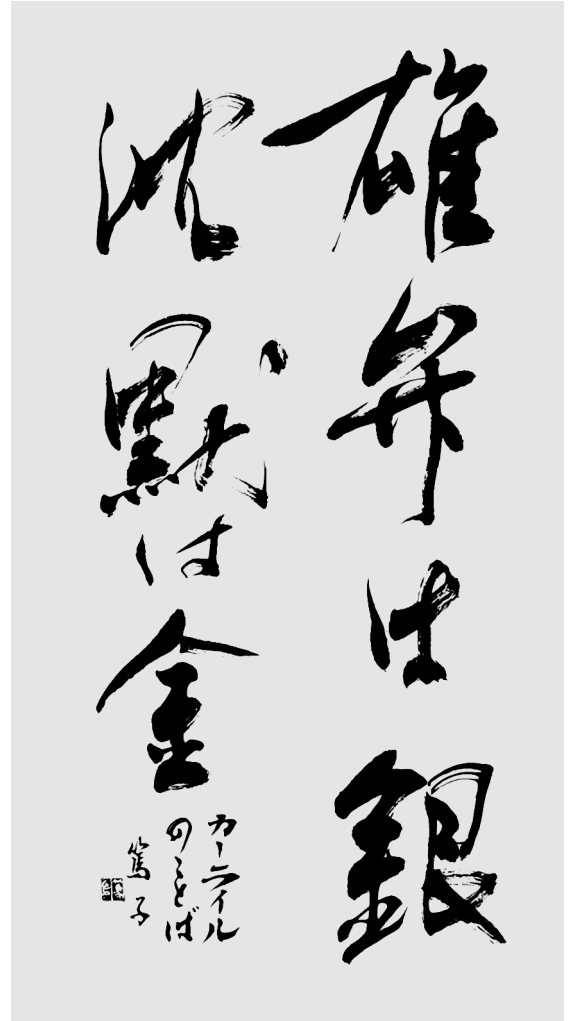 雄弁は銀
沈黙は金
カーライル
のことば
篤子